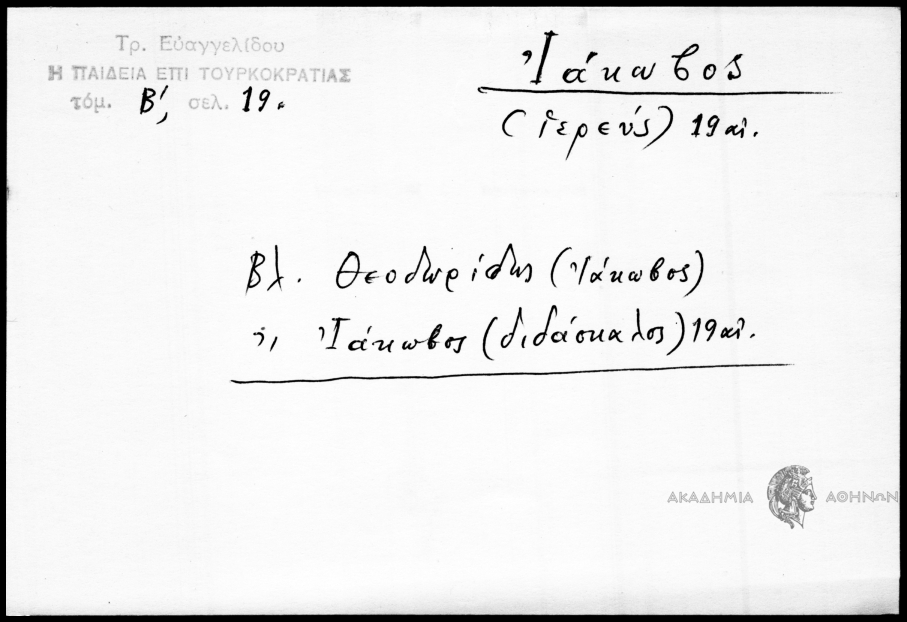 Τρ. Εὐαγγελίδου
Η ΠΑΙΔΕΙΑ ΕΠΙ ΤΟΥΡΚΟΚΡΑΤΙΑΣ
τόμ. Β′, σελ. 19.
Ἰάκωβος
(ἱερεύς) 19 αἰ.
Βλ. Θεοδωρίδης (Ἰάκωβος)
ἤ, Ἰάκωβος (διδάσκαλος) 19 αἰ.
ΑΚΑΔΗΜΙΑ ΑΘΗΝΩΝ